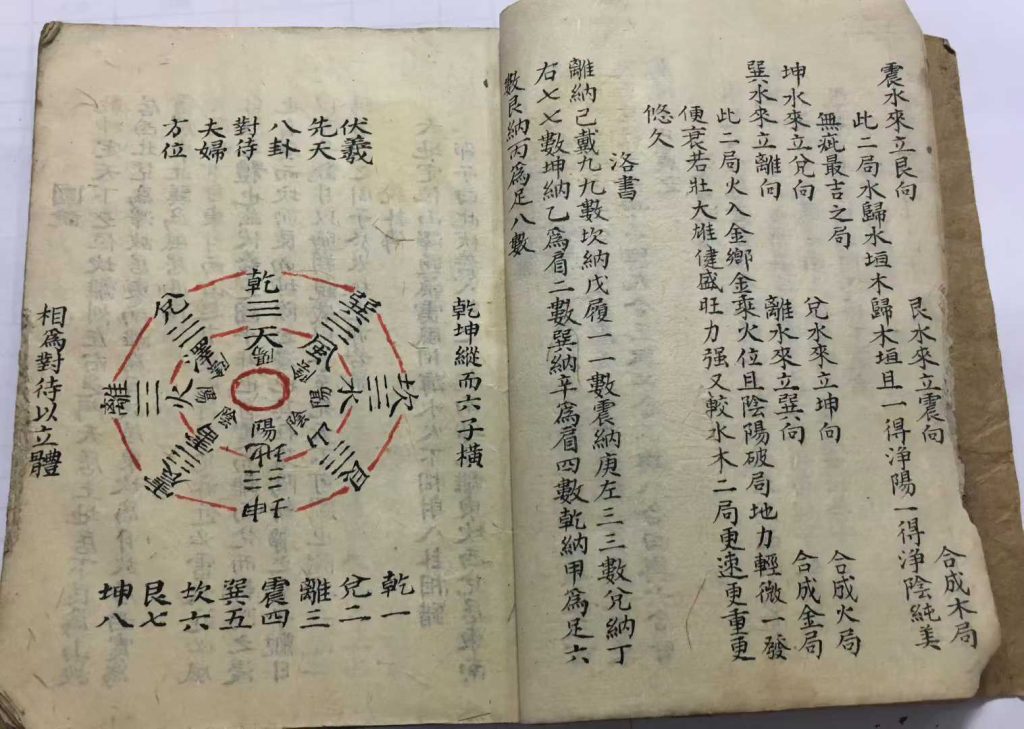 震水來立艮向 艮水來立震向 合成木局
此二局水歸水垣木歸木垣且一得淨陽一得淨陰純美
無疵最吉之局
坤水來立兌向 兌水來立坤向 合成火局
巽水來立離向 離水來立巽向 合成金局
此二局火入金鄉金乘火位且陰陽破局地力輕微一發
便衰若壯大雄健盛旺力强又較水木二局更速更重更
悠久
洛書
離納己戴九九數坎納戊履一一數震納庚左三三數兌納丁
右七七數坤納乙爲眉二數巽納辛爲眉四數乾納甲爲足六
數艮納丙爲足八數
伏羲
先天
八卦
對待
夫婦
方位
乾坤縱而六子橫
乾
☰
天
陽
巽
☴
風
陰
坎
☵
水
陽
艮
☶
坤
☷
地
陰
震
☳
雷
離
☲
火
陽
兌
☱
澤
陰
相爲對待以立體
乾一
兌二
離三
震四
巽五
坎六
艮七
坤八